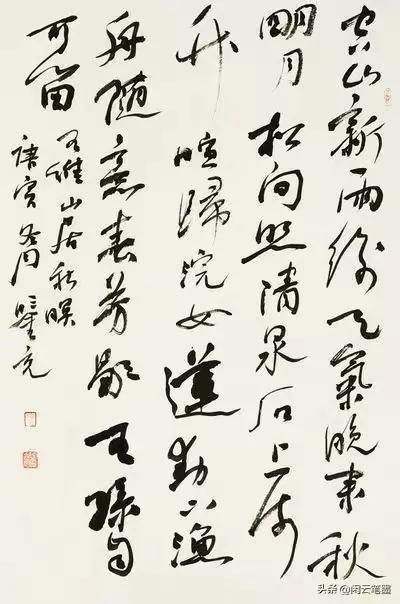 空山新雨後天氣晚来秋
明月松间照清泉石上流
竹喧歸浣女蓮動下漁
舟随意春芳歇王孫自
可留
王維山居秋暝
庚寅
头条 @闲云笔墨